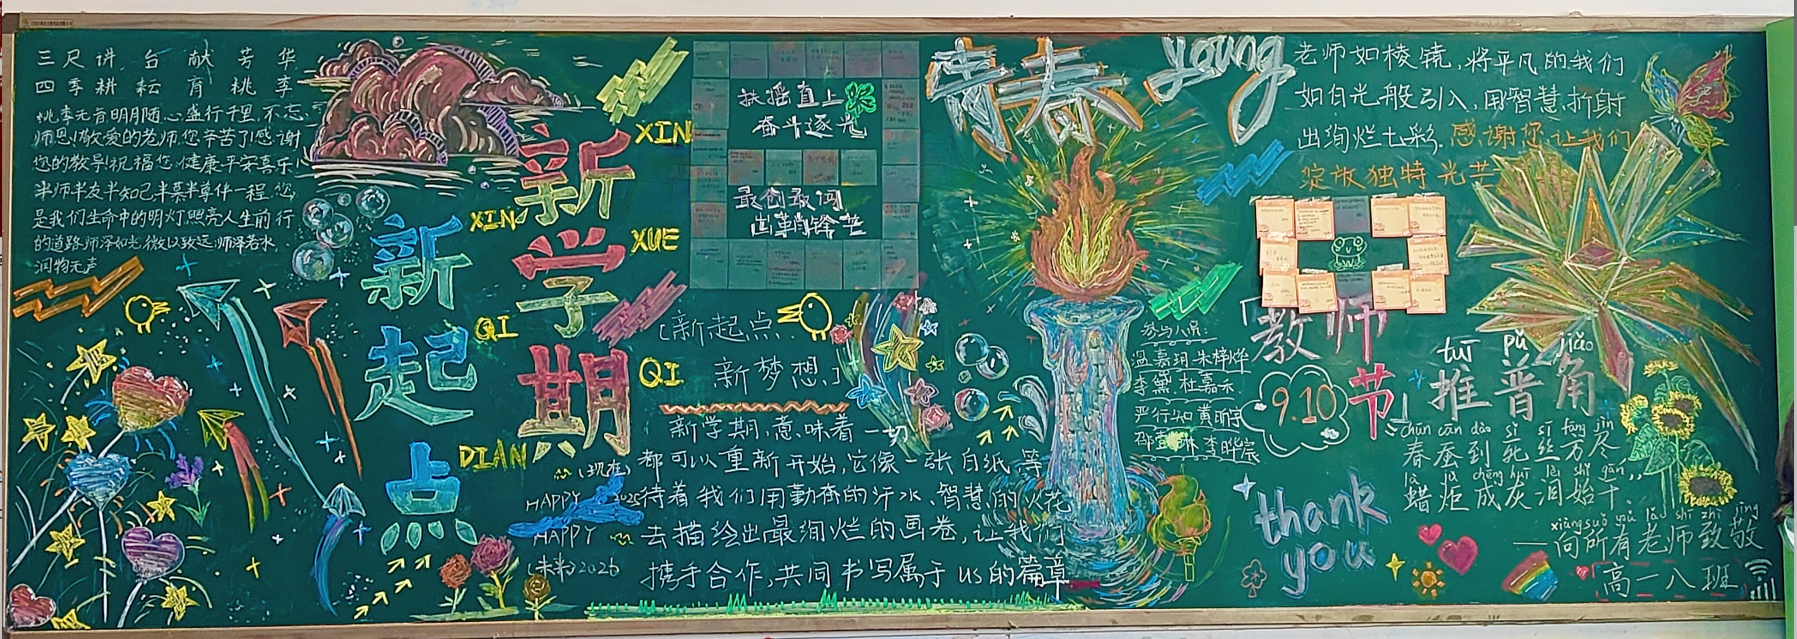 三尺讲台献芳华
四季耕耘育桃李
桃李无言明月随心盛行千里,不忘
师恩!敬爱的老师,您辛苦了!感谢
您的教导!祝福您,健康平安喜乐!
半师半友半知己半慕半尊伴一程.您
是我们生命中的明灯照亮人生前行
的道路.师泽如光,微以致远;师泽若水,
润物无声
新起点
XIN
QI
DIAN
新学期
XIN
XUE
QI
扶摇直上
奋斗逐光
最创最闯
「新起点.
新梦想」
新学期,意味着一切
都可以重新开始,它像一张白纸,等
待着我们用勤奋的汗水、智慧的火花
去描绘出最绚烂的画卷,让我们
携手合作,共同书写属于us的篇章
(现在)
HAPPY 2025
HAPPY
(未来)2026
青春 young
老师如棱镜,将平凡的我们
如白光般引入,用智慧折射
出绚烂七彩.感谢您,让我们
绽放独特光芒
参与人员:
李黛 杜嘉乐
严行知 黄昕宇
李晔宸
「教师节」
9.10
tuī pǔ jiǎo
推普角
chūn cān dào sǐ sī fāng jìn
春蚕到死丝方尽
là jù chéng huī lèi shǐ gān
蜡炬成灰泪始干.
xiàng suǒ yǒu lǎo shī zhì jìng
——向所有老师致敬
thank
you
高一八班